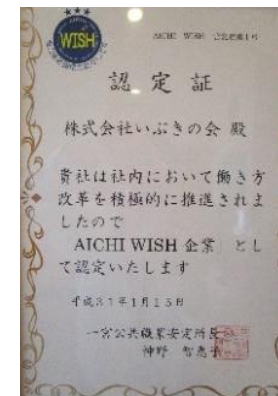 WISH
AICHI WISH
認定証
株式会社いぶきの会 殿
貴社は社内において働き方
改革を積極的に推進されま
したので
「AICHI WISH 企業」とし
て認定いたします
平成31年1月15日
一宮公共職業安定所長
神野